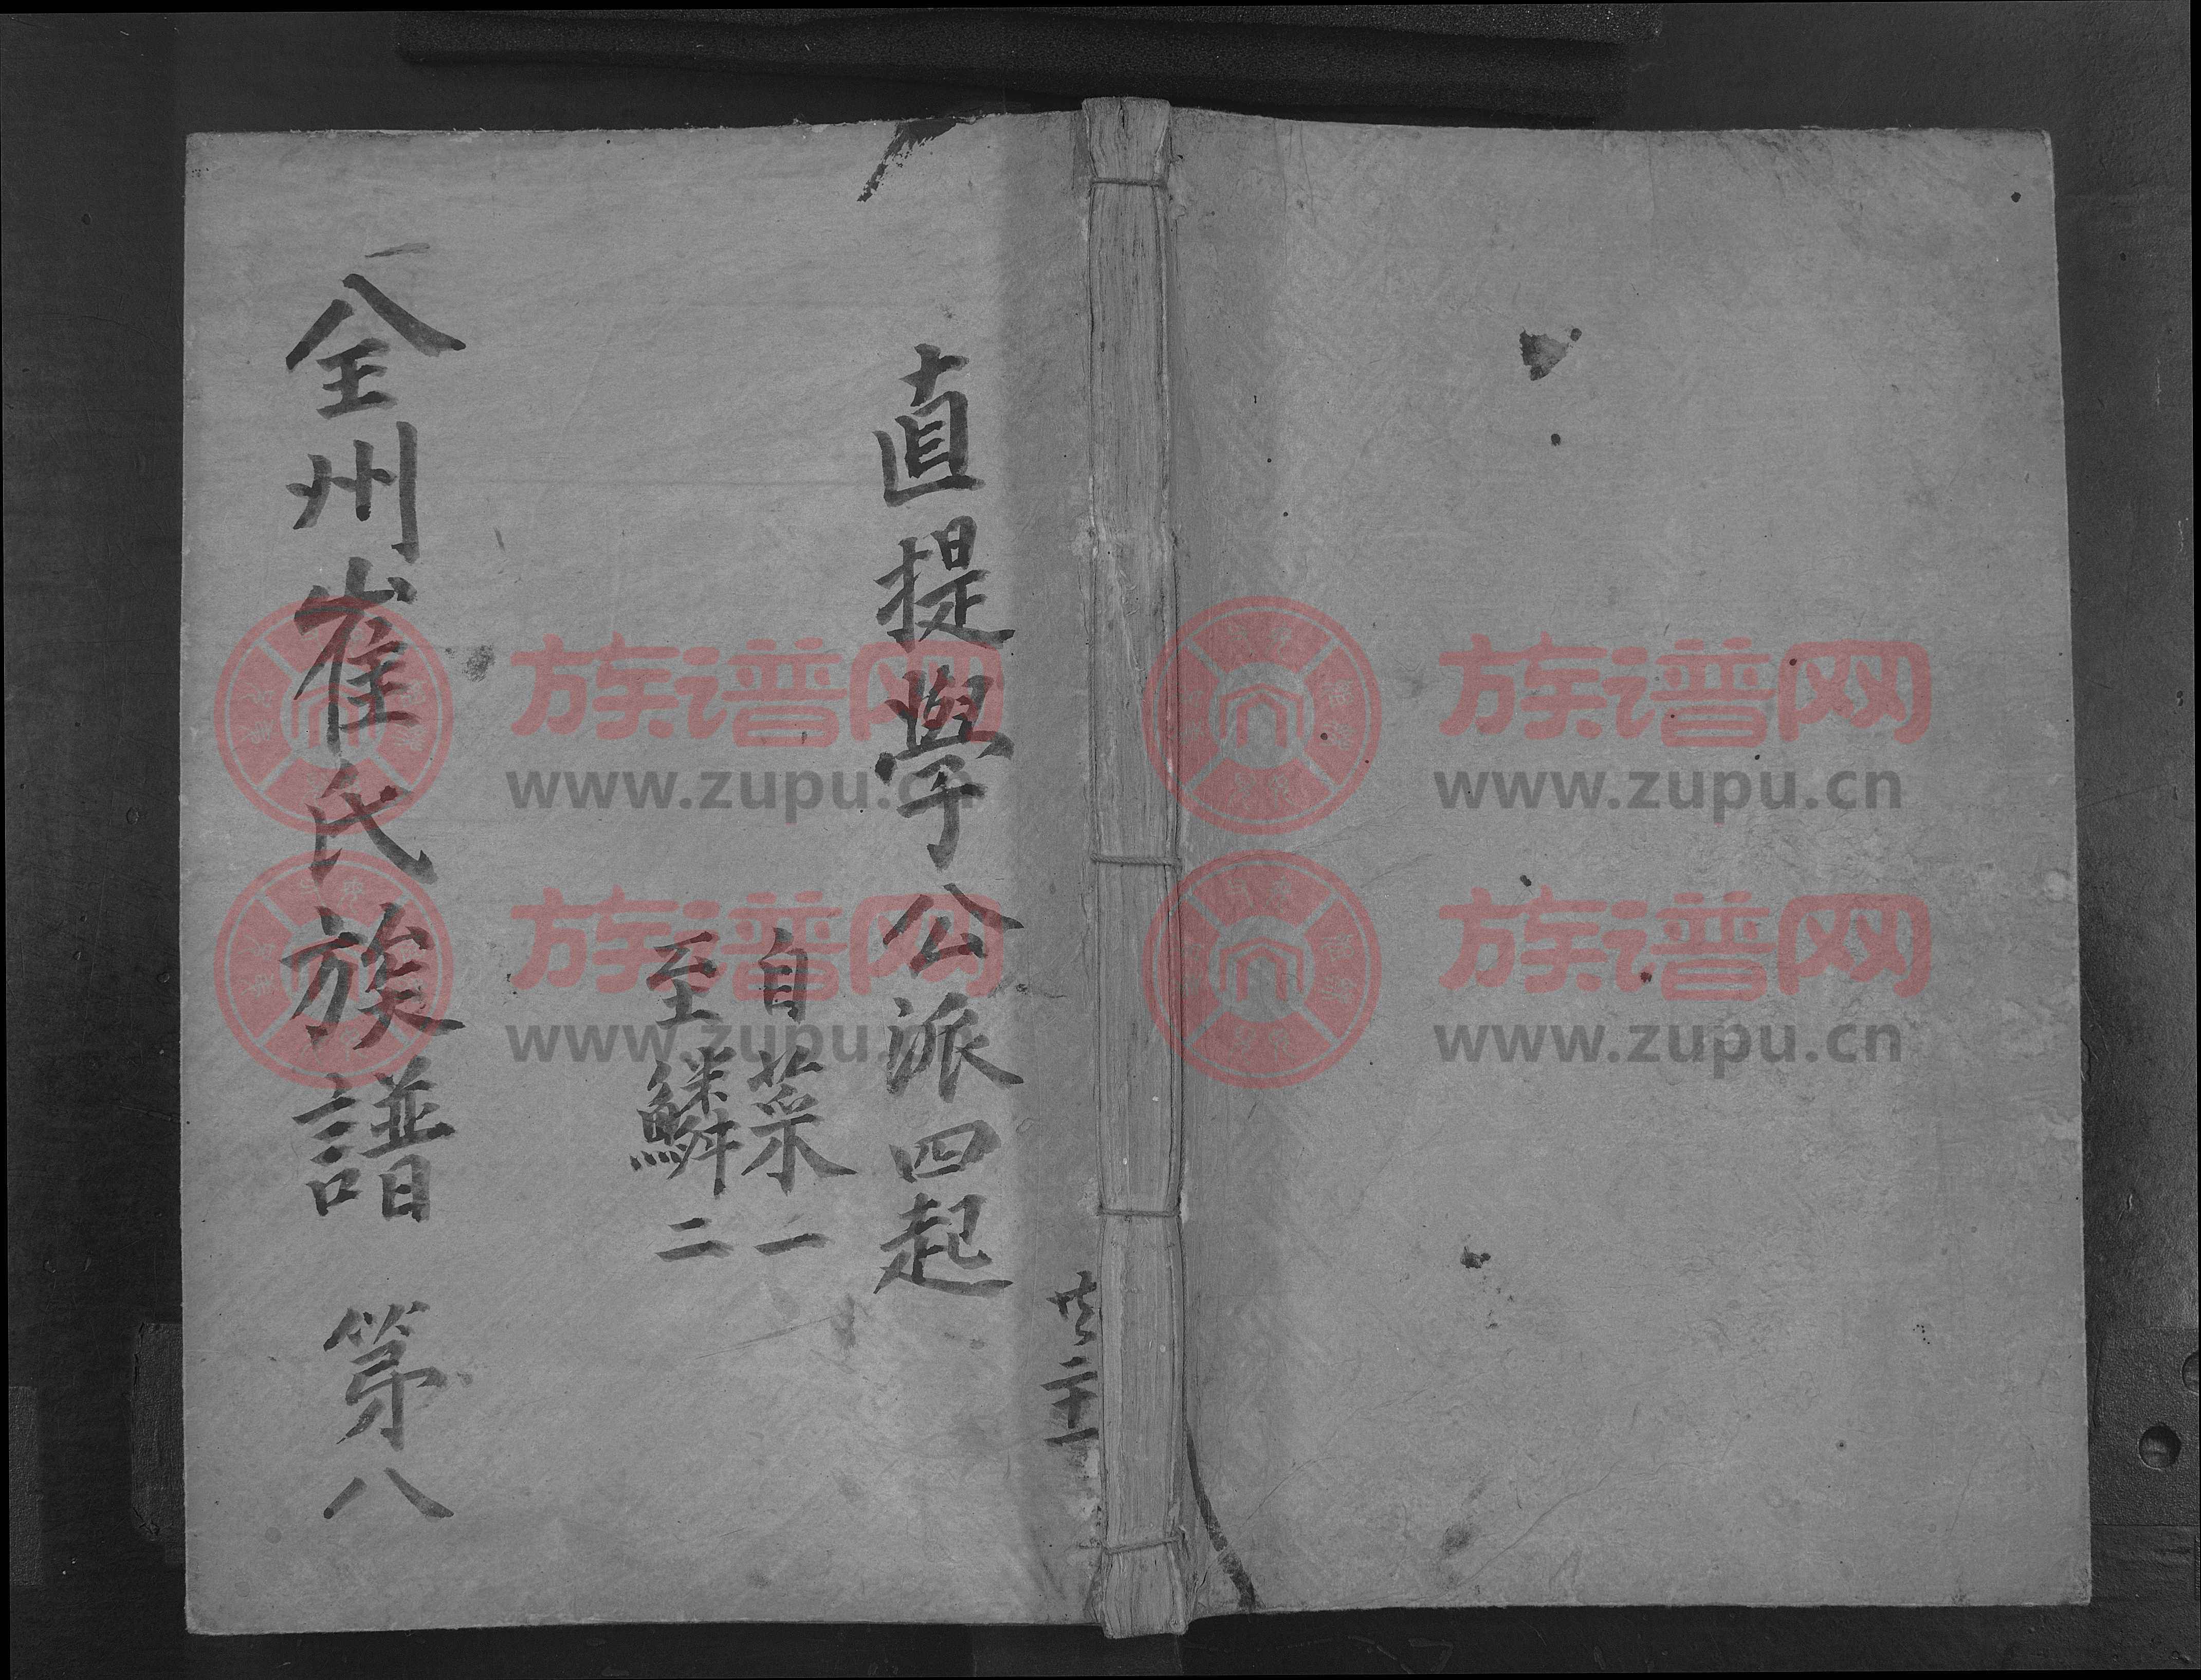 直提學公派四起
自菜一
至鱗二
全州崔氏族譜 第八
共二十一
族谱网
www.zupu.cn
族谱网
www.zupu.cn
族谱网
www.zupu.cn
族谱网
www.zupu.cn